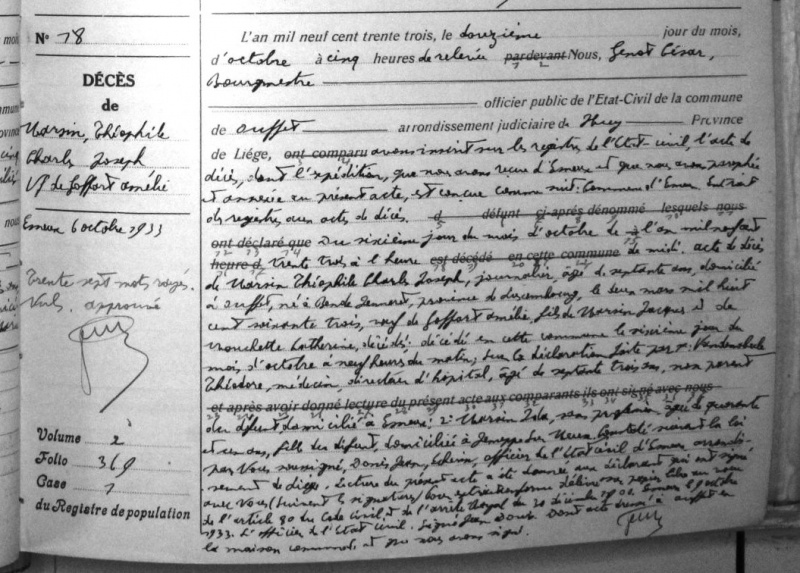 N° 78
DÉCÈS
de
Warsin, Théophile
Charles Joseph
Vf de Goffart Amélie
Esneux 6 octobre 1933
Trente sept mots rayés.
Nuls. approuvé
Volume 2
Folio 369
Case 7
du Registre de population
L'an mil neuf cent trente trois, le douzième jour du mois,
d'octobre à cinq heures de relevée pardevant Nous, Genot César,
Bourgmestre
officier public de l'Etat-Civil de la commune
de Ouffet arrondissement judiciaire de Huy Province
de Liége, ont comparu avons inscrit sur les registres de l'Etat-civil, l'acte de
décès, dont l'expédition, que nous avons reçue d'Esneux et que nous avons paraphée
et annexée au présent acte, est conçue comme suit: Commune d'Esneux Extrait
des registres aux actes de décès. d défunt ci-après dénommé lesquels nous
ont déclaré que Du sixième jour du mois d'octobre de l'an mil neuf cent
heure d trente trois à 1 heure est décédé en cette commune de midi. acte de décès
de Warsin Théophile Charles Joseph, journalier, âgé de septante ans, domicilié
à Ouffet, né à province de Luxembourg, le deux mars mil huit
cent soixante trois, veuf de Goffart Amélie, fils de Warsin Jacques et de
Catherine, décédés: décédé en cette commune le sixième jour du
mois, d'octobre à neuf heures du matin; sur la déclaration faite par 1°:
Théodore, médecin, directeur d'hôpital, âgé de septante trois ans, non parent
et après avoir donné lecture du présent acte aux comparants ils ont signé avec nous
du défunt domicilié à Esneux: 2° Warsin Ida, sans profession âgée de quarante
et un ans, fille du défunt, domiciliée à Jemeppe sur Meuse. Constaté suivant la loi
par Nous soussigné, Donis Jean, Echevin, officier de l'Etat civil d'Esneux arrondis-
sement de Liège. Lecture du présent acte a été donnée aux déclarants qui ont signé
avec Nous (Suivent les signatures) Pour extrait conforme délivré sur papier libre en vertu
de l'article 80 du Code Civil, et de l'arrêté Royal du décembre Esneux octobre
1933. L'officier de l'Etat civil. Signé Jean Donis Dont acte dressé à Ouffet en
la maison communale et que nous avons signé.